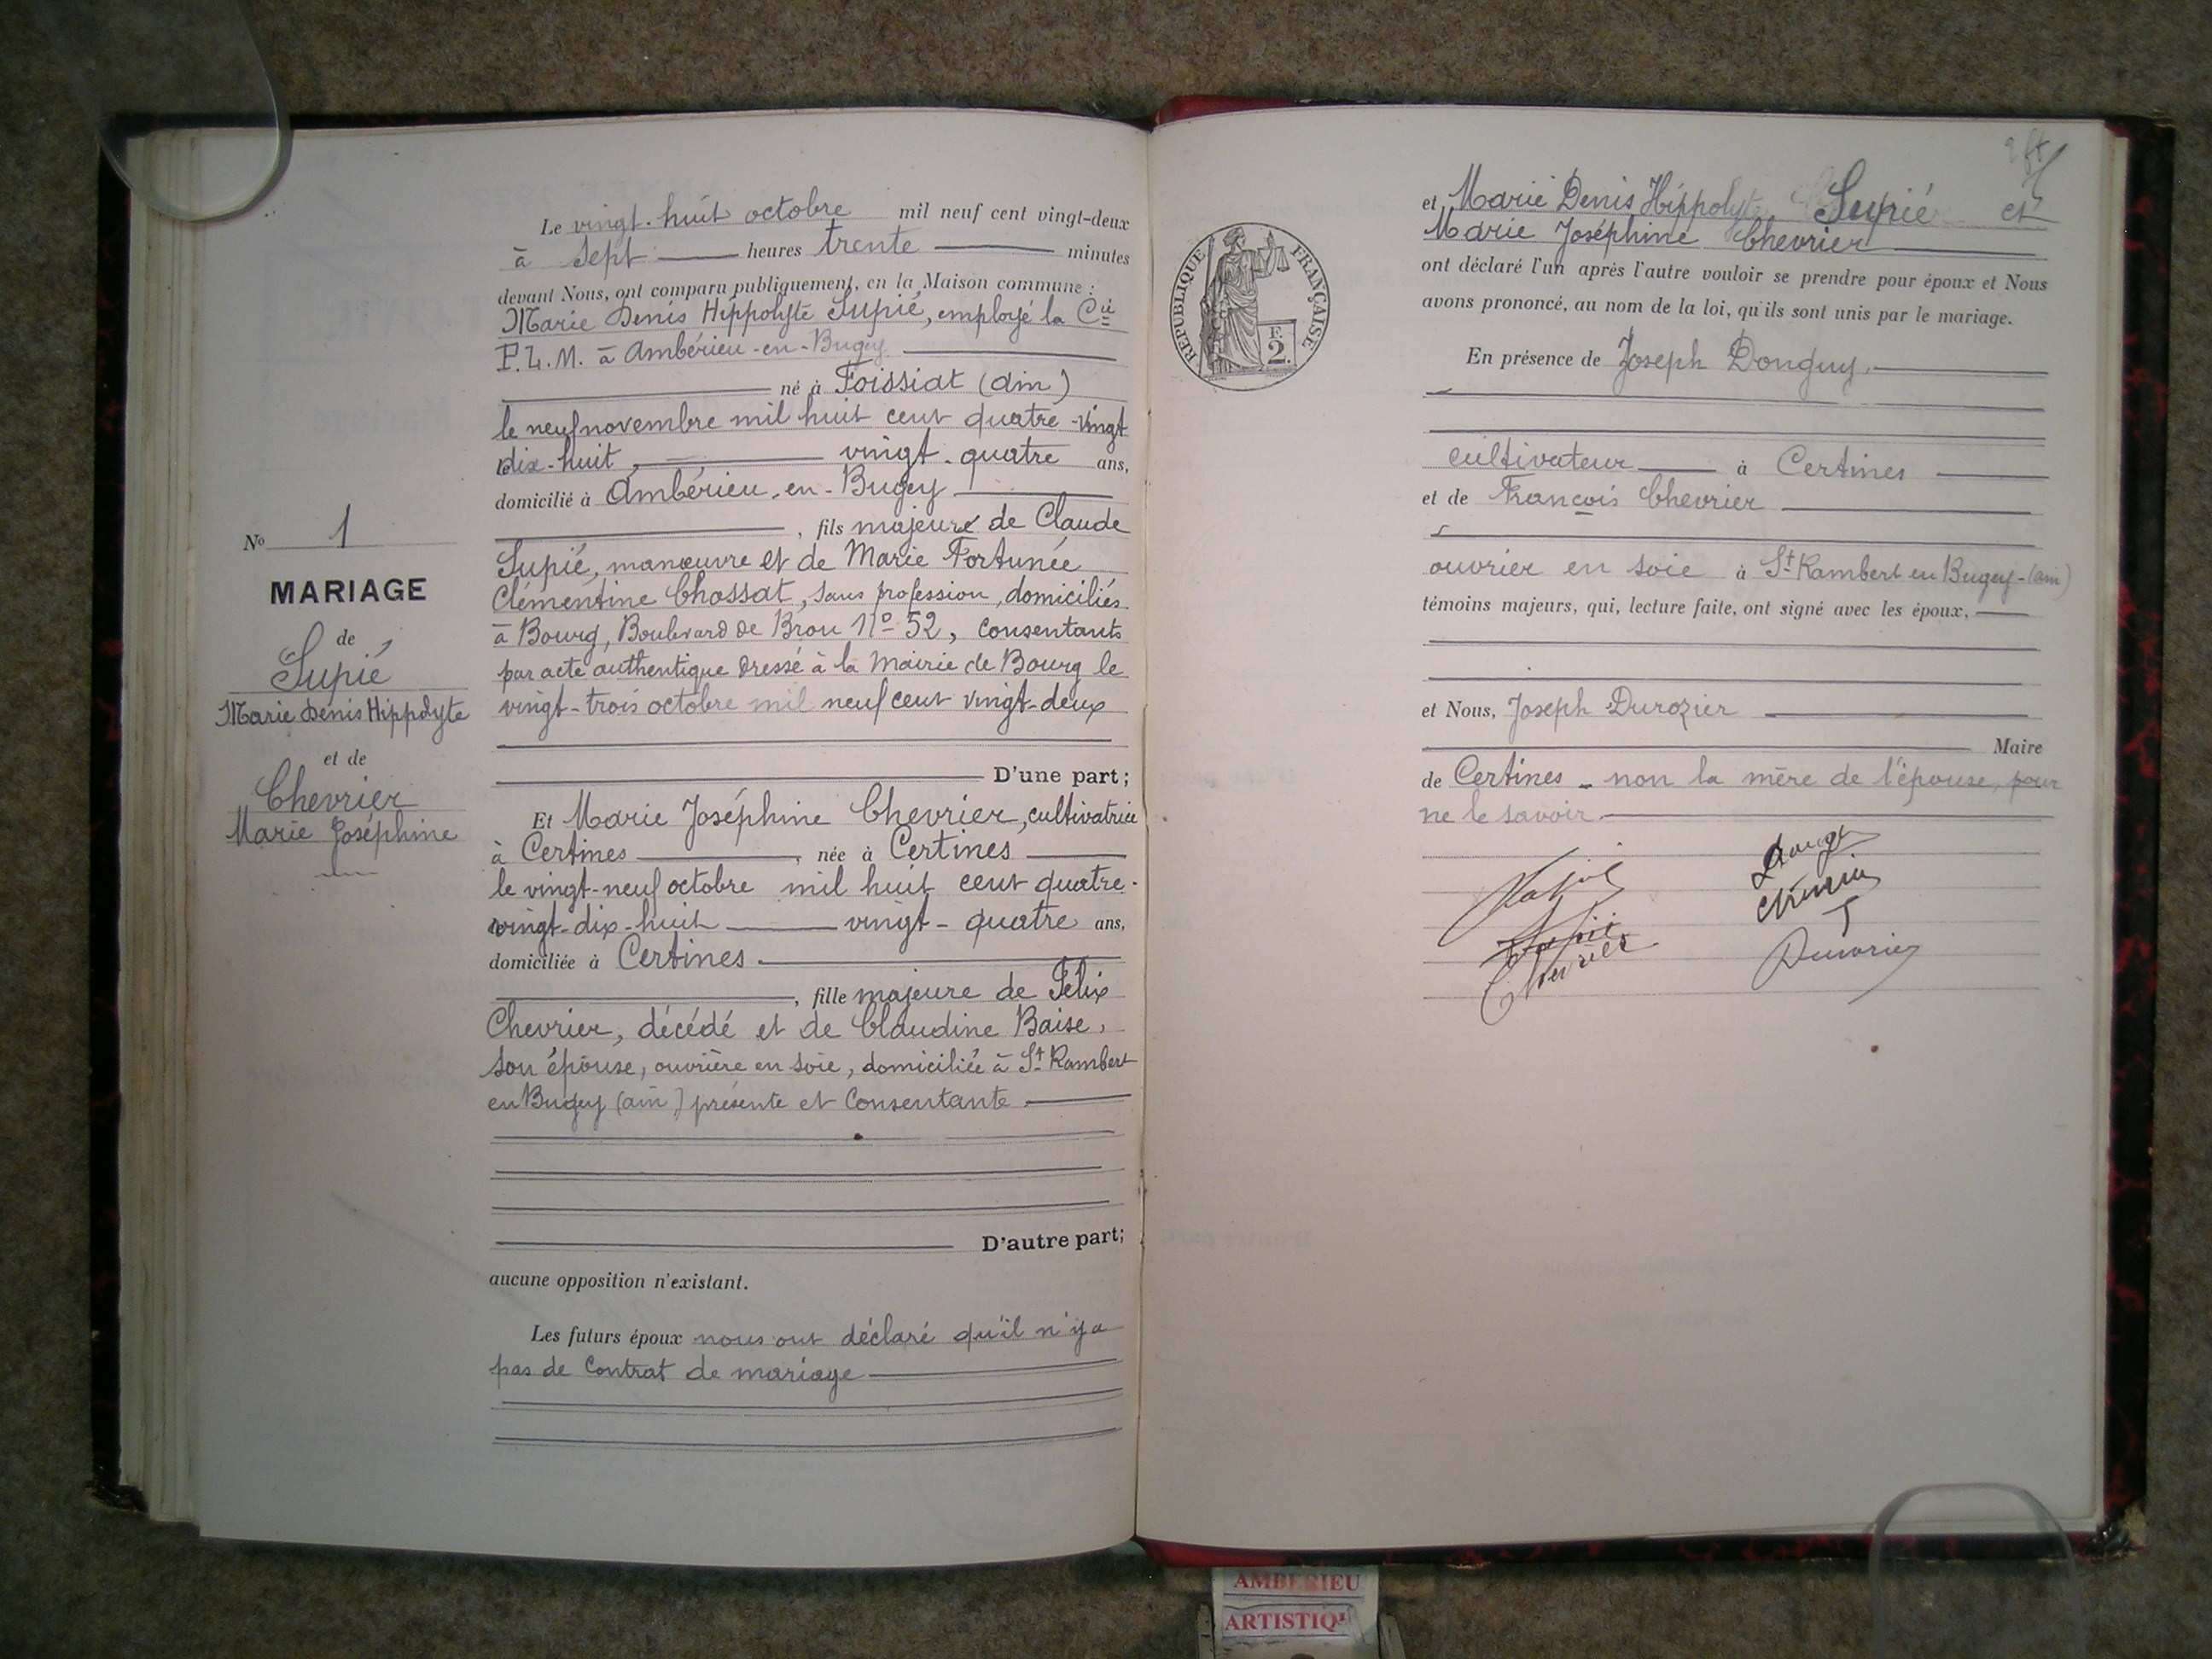 N° 1
MARIAGE
de
Supié
Marie Denis Hippolyte
et de
Chevrier
Marie Joséphine
Le vingt-huit octobre mil neuf cent vingt-deux
à sept heures trente minutes
devant Nous, ont comparu publiquement, en la Maison commune :
Marie Denis Hippolyte Supié, employé la Cie
P.L.M. à Ambérieu-en-Bugey
né à Foissiat (Ain)
le neuf novembre mil huit cent quatre-vingt
dix-huit, vingt-quatre ans,
domicilié à Ambérieu-en-Bugey
, fils majeur de Claude
Supié, manœuvre et de Marie Fortunée
Clémentine Chossat, sans profession, domiciliés
à Bourg, Boulevard de Brou N° 52, consentants
par acte authentique dressé à la Mairie de Bourg le
vingt-trois octobre mil neuf cent vingt-deux
D'une part;
Et Marie Joséphine Chevrier, cultivatrice
à Certines, née à Certines
le vingt-neuf octobre mil huit cent quatre-
vingt-dix-huit vingt-quatre ans,
domiciliée à Certines
, fille majeure de Félix
Chevrier, décédé et de Claudine Baise,
son épouse, ouvrière en soie, domiciliée à St Rambert
en Bugey (Ain) présente et consentante
D'autre part;
aucune opposition n'existant.
Les futurs époux nous ont déclaré qu'il n'y a
pas de contrat de mariage
RÉPUBLIQUE FRANÇAISE
F.
2.
et Marie Denis Hippolyte Supié et
Marie Joséphine Chevrier
ont déclaré l'un après l'autre vouloir se prendre pour époux et Nous
avons prononcé, au nom de la loi, qu'ils sont unis par le mariage.
En présence de Joseph Donguy,
cultivateur à Certines
et de François Chevrier
ouvrier en soie à St Rambert en Bugey-(Ain)
témoins majeurs, qui, lecture faite, ont signé avec les époux,
et Nous, Joseph Durozier
Maire
de Certines - non la mère de l'épouse, pour
ne le savoir
Supié
Chevrier
Durozier
AMBERIEU
ARTISTIQU